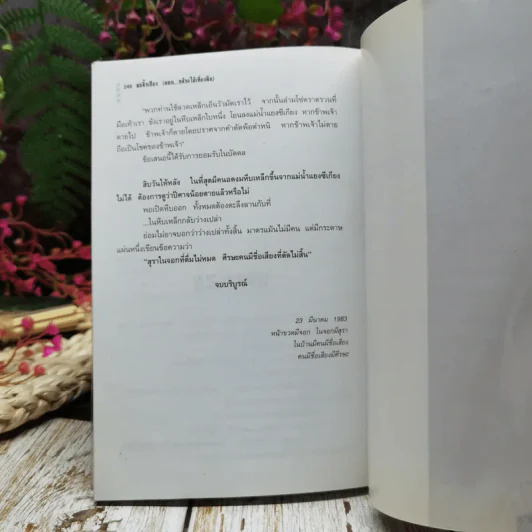 246 ชอลิ้วเฮียง (ตอน...กล้วยไม้เที่ยงคืน)
"พวกท่านใช้ลวดเหล็กเย็นวามัดเราไว้ จากนั้นล่ามโซ่ตราตรวนที่
มือเท้าเรา ขังเราอยู่ในหีบเหล็กใบหนึ่ง โยนลงแม่น้ำแยงซีเกียง หากข้าพเจ้า
ตายไป ข้าพเจ้าก็ตายโดยปราศจากคำตัดพ้อตำหนิ หากข้าพเจ้าไม่ตาย
ถือเป็นโชคของข้าพเจ้า"
ข้อเสนอนี้ได้รับการยอมรับในบัดดล
สิบวันให้หลัง ในที่สุดมีคนอดงมหีบเหล็กขึ้นจากแม่น้ำแยงซีเกียง
ไม่ได้ ต้องการดูว่าปีศาจน้อยตายแล้วหรือไม่
พอเปิดหีบออก ทั้งหมดต้องตะลึงลานกับที่
...ในหีบเหล็กกลับว่างเปล่า
ย่อมไม่อาจบอกว่าว่างเปล่าทั้งสิ้น มาตรแม้นไม่มีคน แต่มีกระดาษ
แผ่นหนึ่งเขียนข้อความว่า
"สุราในจอกที่ดื่มไม่หมด ศีรษะคนมีชื่อเสียงที่ตัดไม่สิ้น"
จบบริบูรณ์
23 มีนาคม 1983
หน้าขวดมีจอก ในจอกมีสุรา
ในบ้านมีคนมีชื่อเสียง
คนมีชื่อเสียงมีศีรษะ